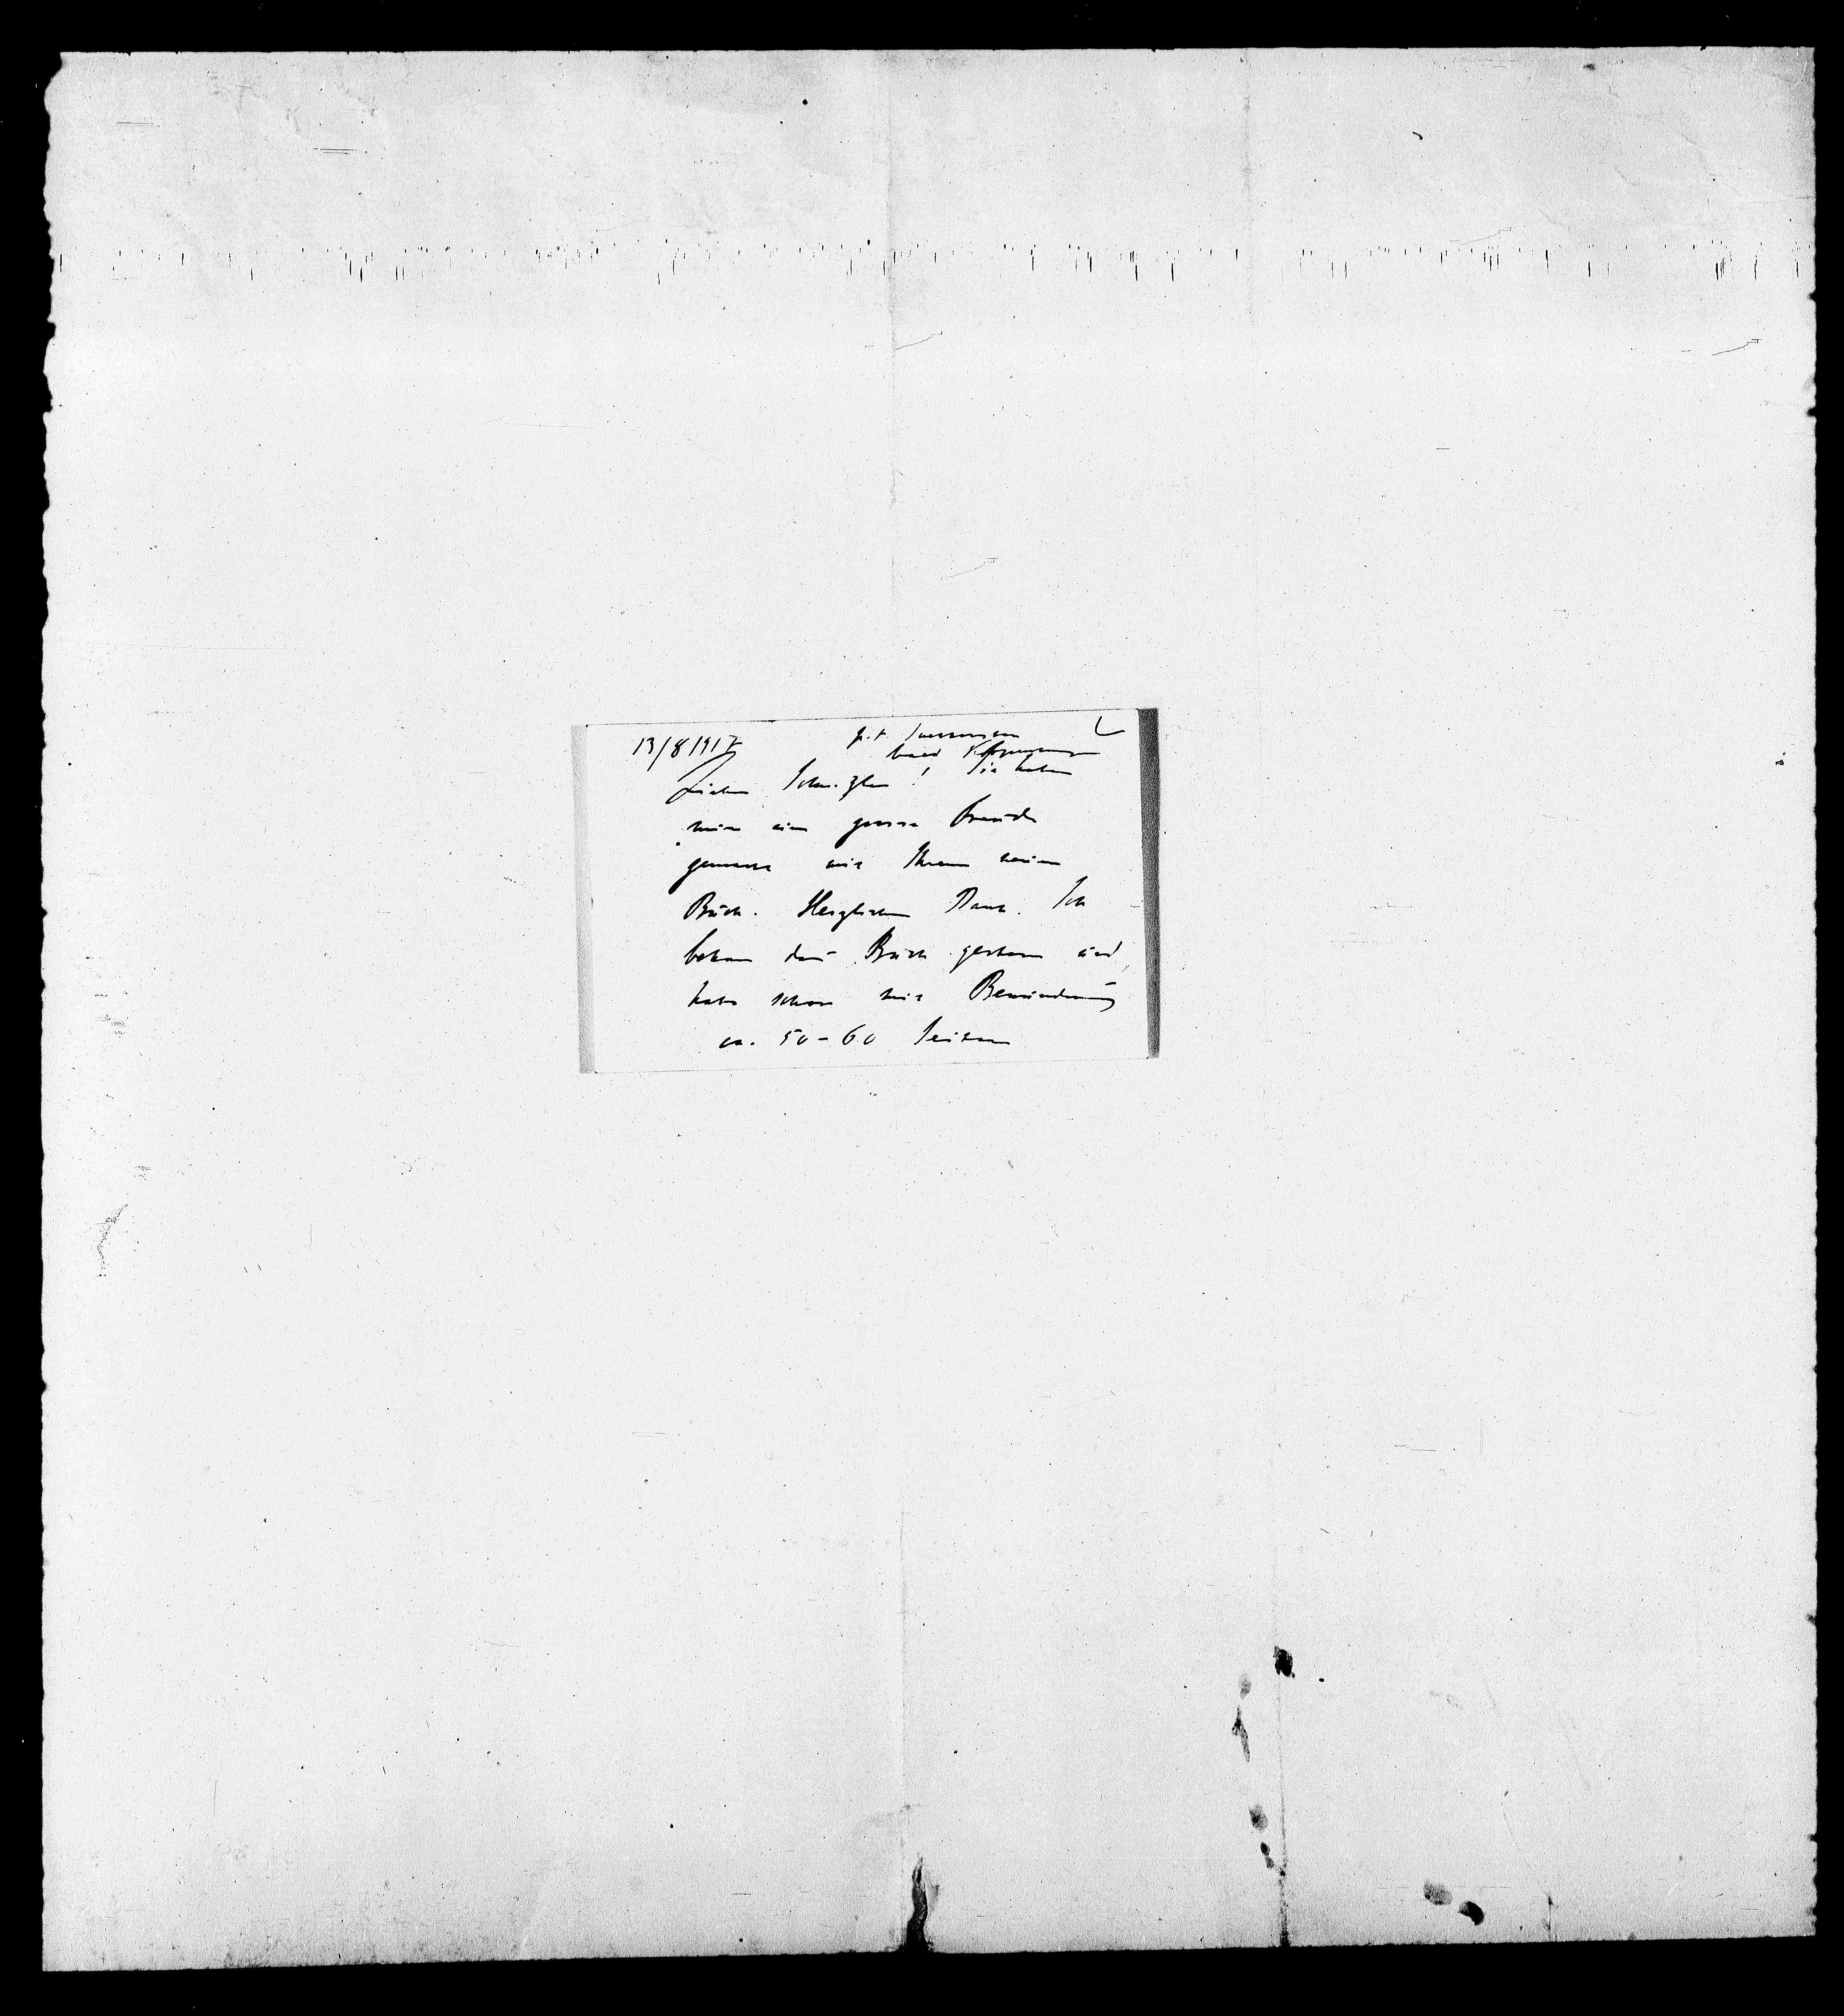 13/8 1917 p. t.
Lieber Schnitzler! Sie haben
mir eine grosse Freude
gemacht mit Ihrem neuen
Buch. Herzlichen Dank. Ich
bekam das Buch gestern und
habe schon mit Bewunderung
ca. 50-60 Seiten